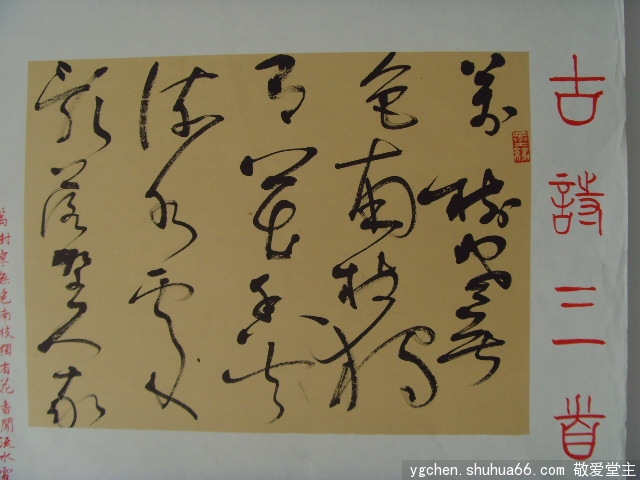 古詩三首
萬樹寒無
色南枝獨
有花香聞
流水處
影落野人家
萬樹寒無色南枝獨有花香聞流水
ygchen.shuhua66.com 敬爱堂主